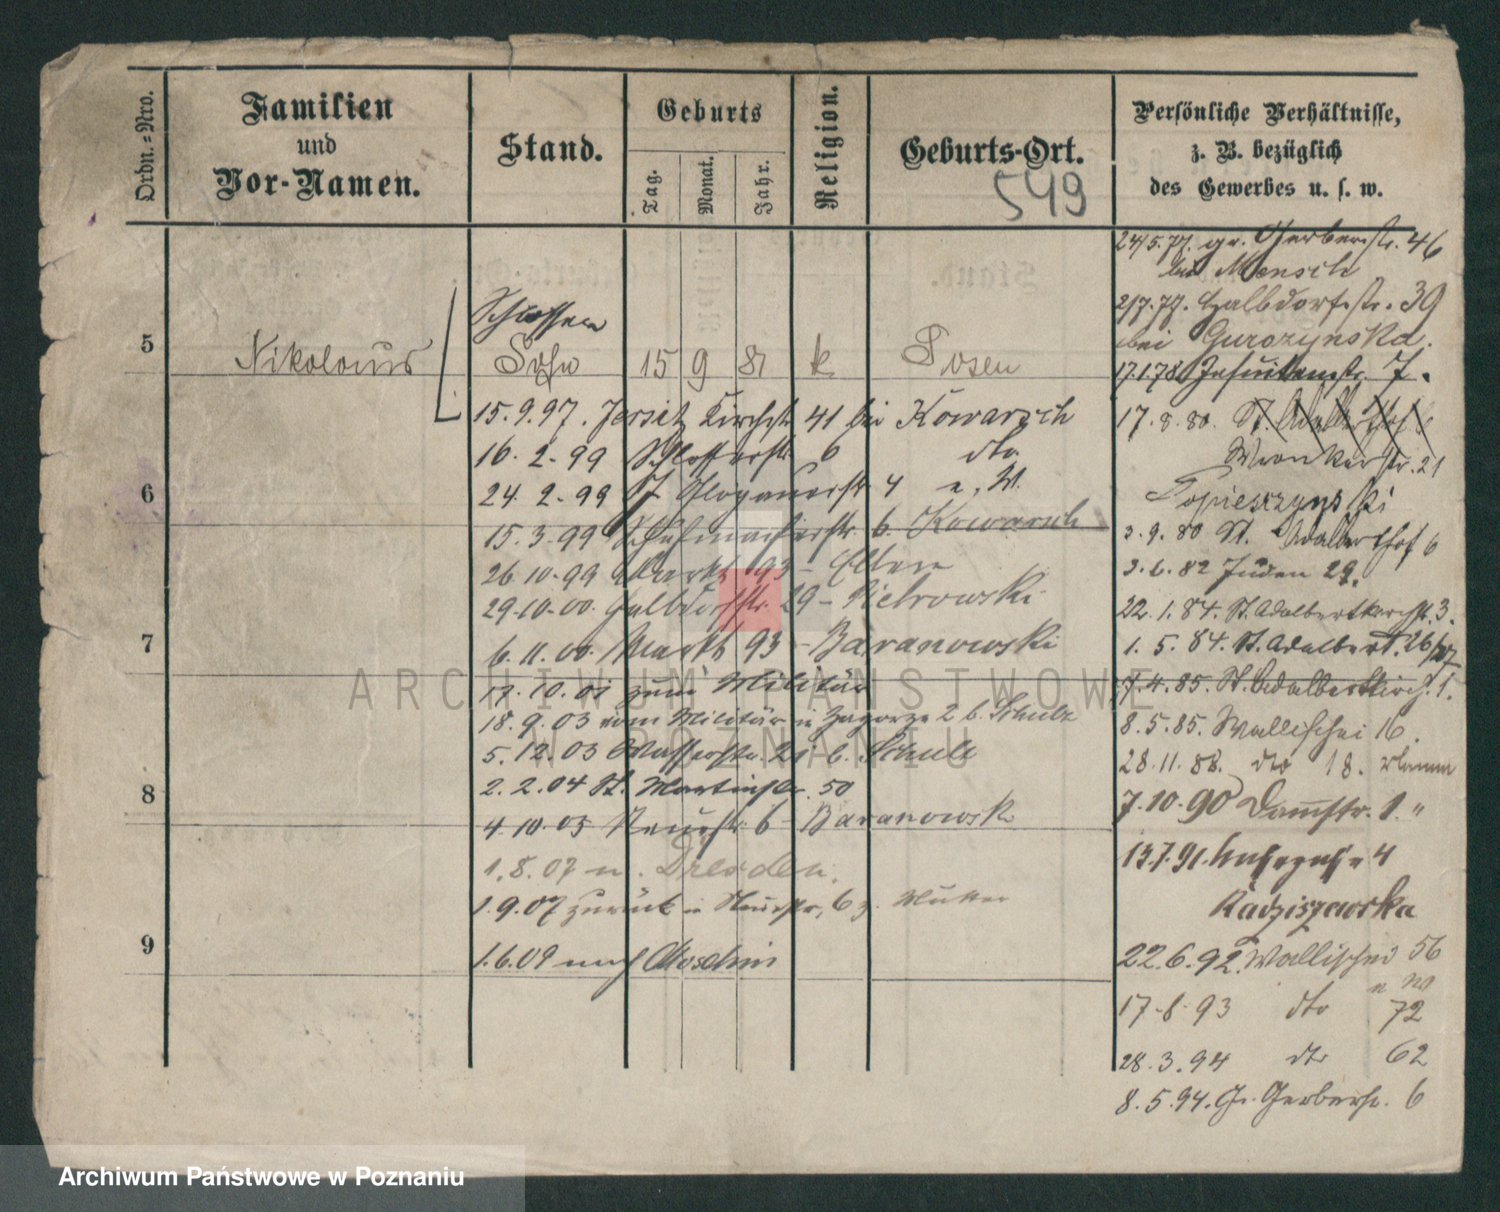 Ordn.=Nro.
Familien
und
Vor-Namen.
Stand.
Geburts
Tag.
Monat.
Jahr.
Religion.
Geburts-Ort.
549
Persönliche Verhältnisse,
z. B. bezüglich
des Gewerbes u. s. w.
5
Nikolaus
Schlosser
Sohn
15 9 81 k
Posen
15.9.97. Jersitz Kirchstr 41 bei Kowarsch
16.2.99 Schlosserstr 6 dto
24.2.99 Gr Glogauerstr 4
15.3.99 Schuhmacherstr. 6. Kowarsch
26.10.99 Markt 93 – Eltern
29.10.00. Halbdorfstr. 29 – Pietrowski
6.11.00. Markt 93 – Baranowski
17.10.01 zum Militär
18.9.03 vom Militär in Zagorze 2 b. Schulz
5.12.03 Wasserstr 21 b. Schulz
2.2.04 St. Martinstr. 50
4.10.05 Neuestr. 6 – Baranowsk
1.8.07 n. Dresden.
1.9.07 zurück in Neuestr. 6 z. Mutter
1.6.09 nach Moschin
6
7
8
9
24/5.77. gr. Gerberstr. 46
bei Mensch
2/7.77. Halbdorfstr. 39
bei Gurozynska.
17.1.78 Jesuitenstr. 7.
17.8.80. St. Adalberthof
Wronkerstr. 21
Topieszynski
3.9.80 St. Adalberthof 6
3.6.82 Juden 29.
22.1.84. St. Adalbertkirchst. 3.
1.5.84. St. Adalbert. 26/27
7.4.85. St. Adalbertkirch. 1.
8.5.85. Wallischei 16.
28.11.88. dto 18.
7.10.90 Dammstr. 1. "
13.7.91. 4
Radziszewska
22.6.92. Wallischei 56
17.8.93 dto 72
28.3.94 dto 62
8.5.94. Gr. Gerberstr. 6
ARCHIWUM PAŃSTWOWE
W POZNANIU
Archiwum Państwowe w Poznaniu